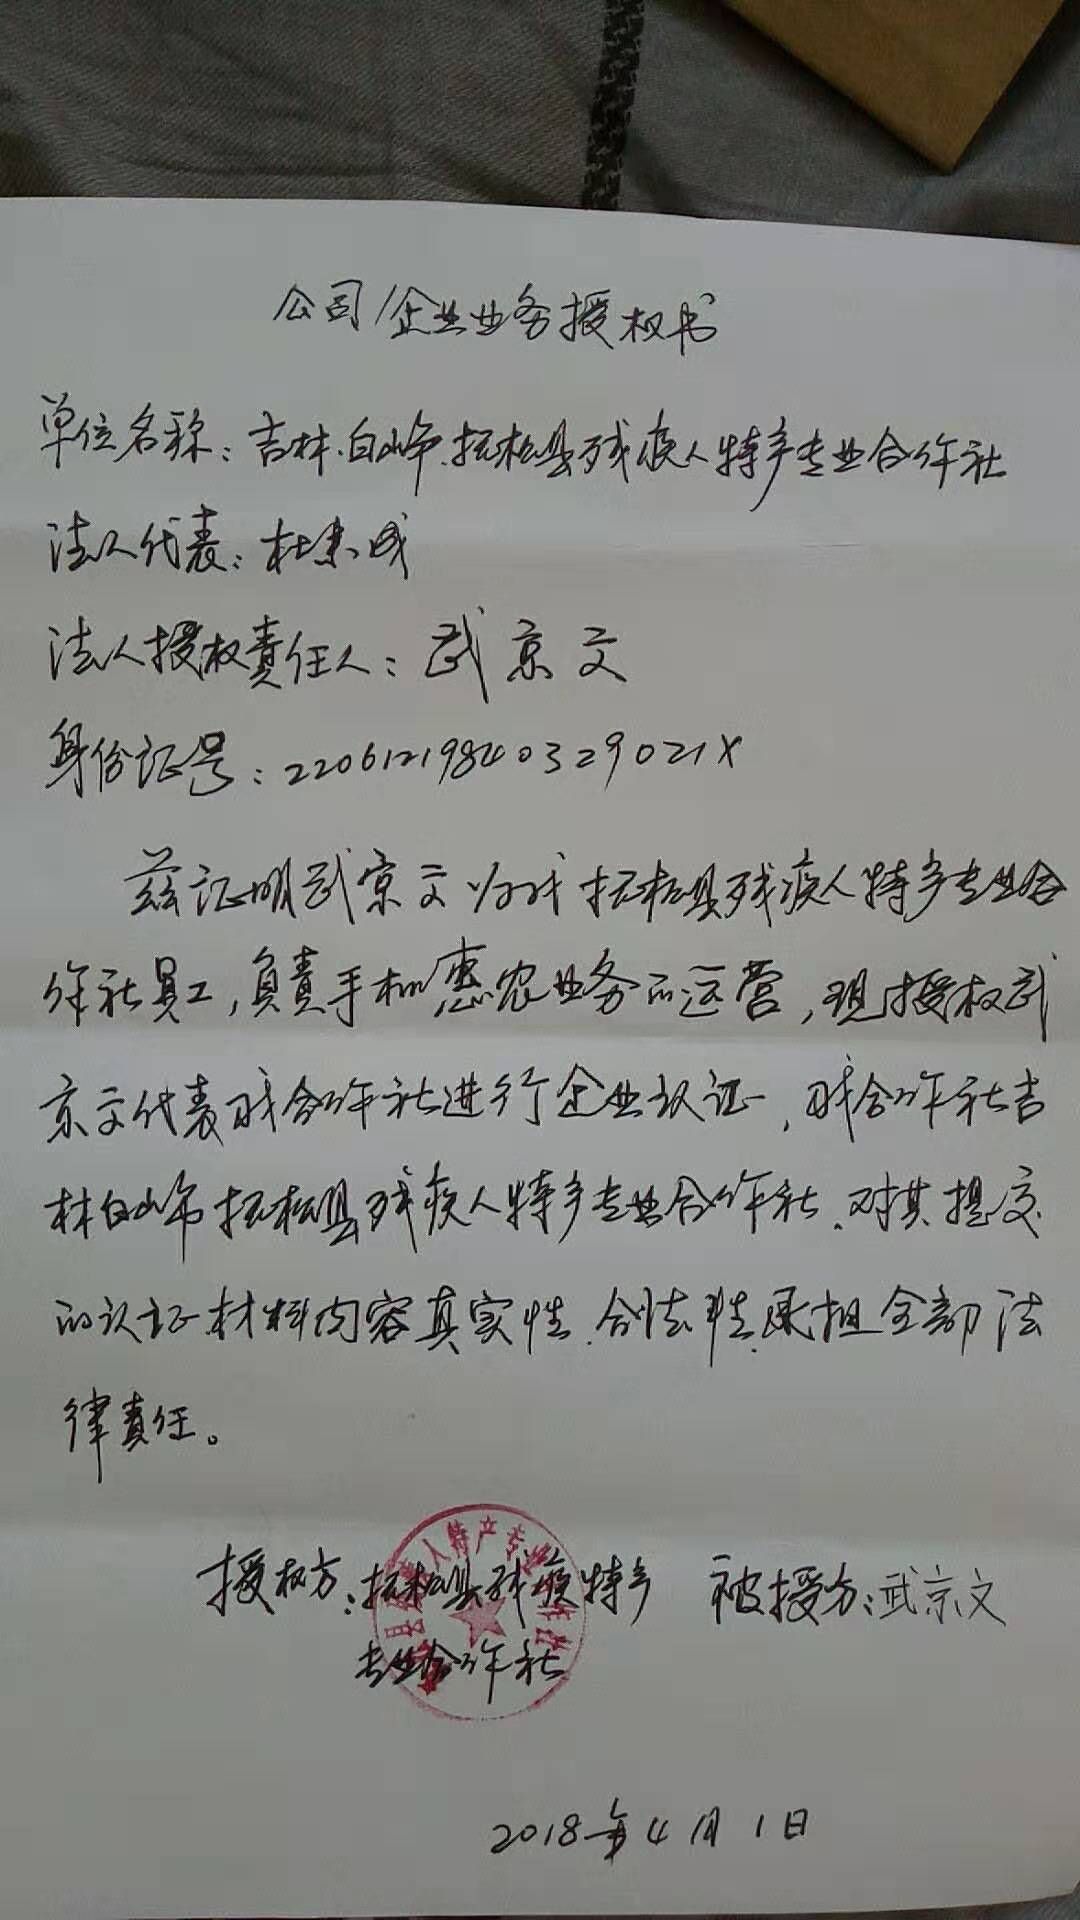 公司/企业业务授权书
单位名称:吉林.白山市.抚松县残疾人特产专业合作社
法人代表:杜 成
法人授权责任人:武京文
身份证号:22061219840329021X
兹证明武京文为我抚松县残疾人特产专业合
作社员工,负责手机惠农业务的运营,现授权武
京文代表我合作社进行企业认证,我合作社吉
林白山市抚松县残疾人特产专业合作社.对其提交
的认证材料内容真实性.合法性.承担全部法
律责任。
县 人特产专业 作社
授权方:抚松县残疾特产 被授方:武京文
专业合作社
2018年4月1日